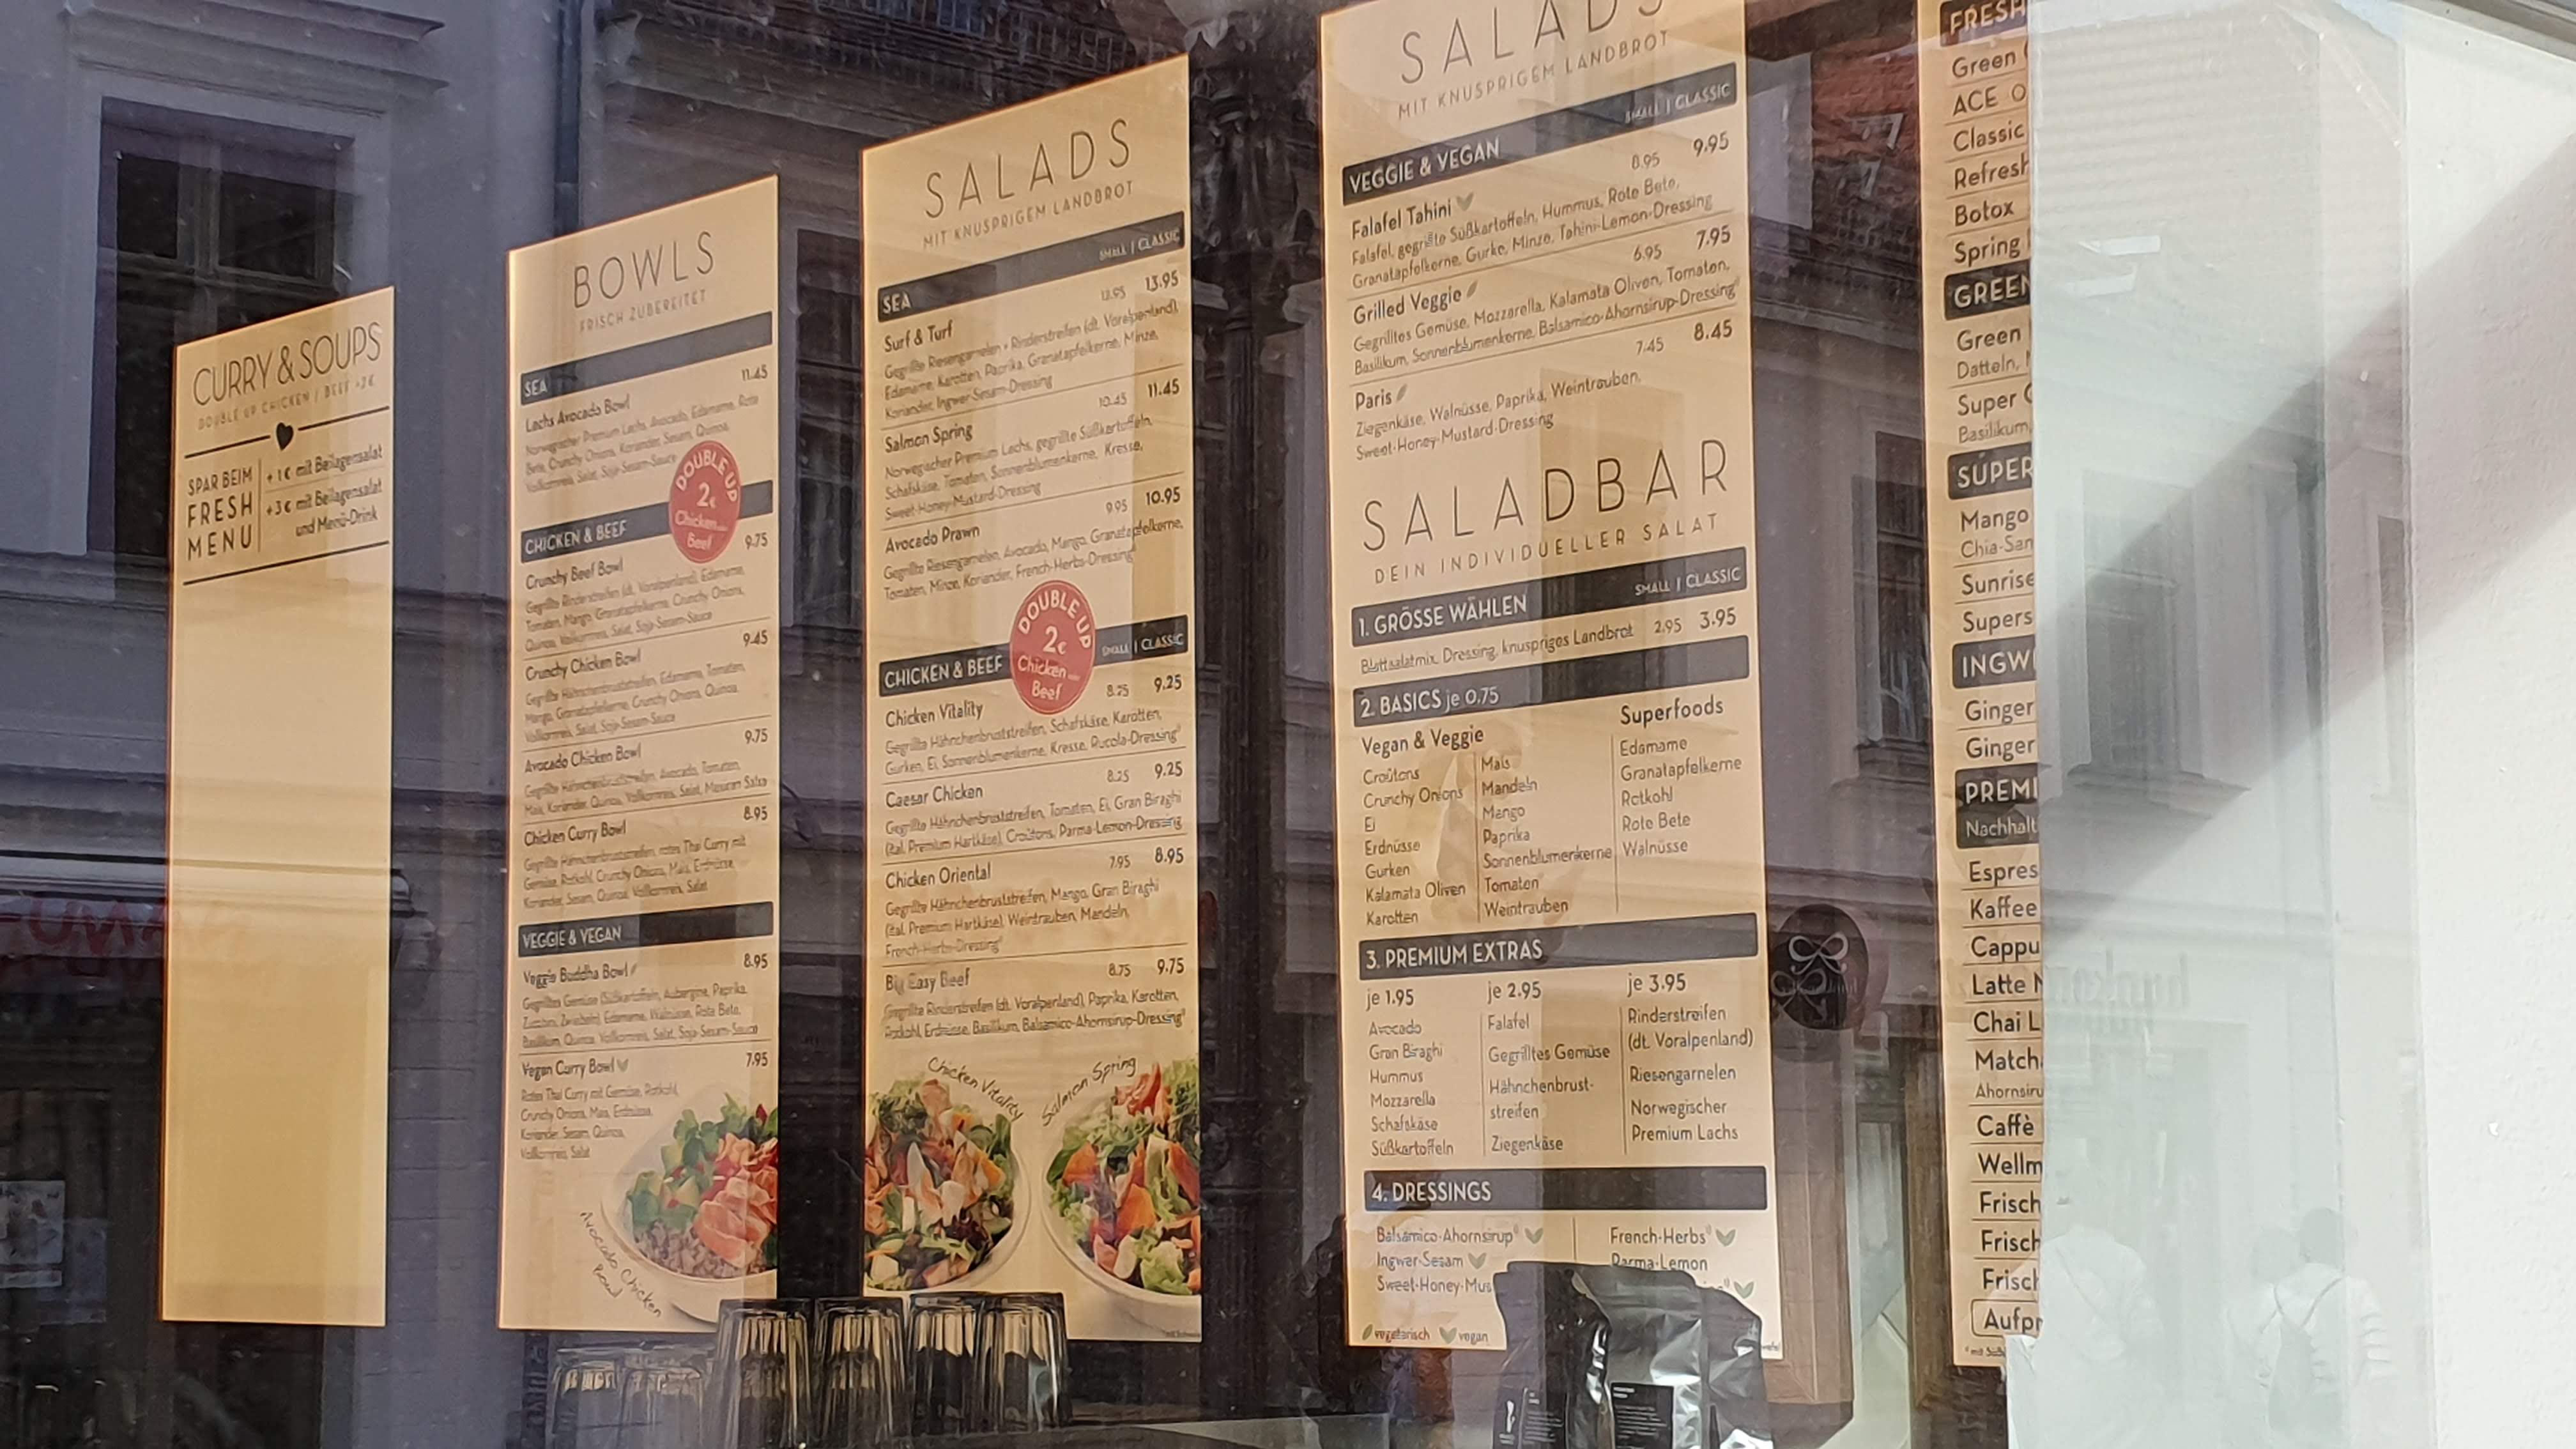 CURRY & SOUPS
DOUBLE UP CHICKEN / BEEF +2€
SPAR BEIM
FRESH
MENU
+ 1€ mit Beilagensalat
+ 3€ mit Beilagensalat
und Menü-Drink
BOWLS
FRISCH ZUBEREITET
SEA
Lachs Avocado Bowl 11.45
Norwegischer Premium Lachs, Avocado, Edamame, Rote
Bete, Crunchy Onions, Koriander, Sesam, Quinoa,
Vollkornreis, Salat, Soja-Sesam-Sauce
DOUBLE UP
2€
Chicken
Beef
CHICKEN & BEEF
Crunchy Beef Bowl 9.75
Gegrillte Rinderstreifen (dt. Voralpenland), Edamame,
Tomaten, Mango, Granatapfelkerne, Crunchy Onions,
Quinoa, Vollkornreis, Salat, Soja-Sesam-Sauce
Crunchy Chicken Bowl 9.45
Gegrillte Hähnchenbruststreifen, Edamame, Tomaten,
Mango, Granatapfelkerne, Crunchy Onions, Quinoa,
Vollkornreis, Salat, Soja-Sesam-Sauce
Avocado Chicken Bowl 9.75
Gegrillte Hähnchenbruststreifen, Avocado, Tomaten,
Mais, Koriander, Quinoa, Vollkornreis, Salat, Mexican Salsa
Chicken Curry Bowl 8.95
Gegrillte Hähnchenbruststreifen, rotes Thai Curry mit
Gemüse, Rotkohl, Crunchy Onions, Mais, Erdnüsse,
Koriander, Sesam, Quinoa, Vollkornreis, Salat
VEGGIE & VEGAN
Veggie Buddha Bowl 8.95
Gegrilltes Gemüse (Süßkartoffeln, Aubergine, Paprika,
Zucchini, Zwiebeln), Edamame, Walnüsse, Rote Bete,
Basilikum, Quinoa, Vollkornreis, Salat, Soja-Sesam-Sauce
Vegan Curry Bowl 7.95
Rotes Thai Curry mit Gemüse, Rotkohl,
Crunchy Onions, Mais, Erdnüsse,
Koriander, Sesam, Quinoa,
Vollkornreis, Salat
Avocado Chicken
Bowl
SALADS
MIT KNUSPRIGEM LANDBROT
SEA SMALL | CLASSIC
Surf & Turf 13.95
Gegrillte Riesengarnelen + Rinderstreifen (dt. Voralpenland),
Edamame, Karotten, Paprika, Granatapfelkerne, Minze,
Koriander, Ingwer-Sesam-Dressing
Salmon Spring 10.45 11.45
Norwegischer Premium Lachs, gegrillte Süßkartoffeln,
Schafskäse, Tomaten, Sonnenblumenkerne, Kresse,
Sweet-Honey-Mustard-Dressing
Avocado Prawn 9.95 10.95
Gegrillte Riesengarnelen, Avocado, Mango, Granatapfelkerne,
Tomaten, Minze, Koriander, French-Herbs-Dressing
DOUBLE UP
2€
Chicken
Beef
CHICKEN & BEEF SMALL | CLASSIC
Chicken Vitality 8.25 9.25
Gegrillte Hähnchenbruststreifen, Schafskäse, Karotten,
Gurken, Ei, Sonnenblumenkerne, Kresse, Rucola-Dressing
Caesar Chicken 8.25 9.25
Gegrillte Hähnchenbruststreifen, Tomaten, Ei, Gran Biraghi
(ital. Premium Hartkäse), Croûtons, Parma-Lemon-Dressing
Chicken Oriental 7.95 8.95
Gegrillte Hähnchenbruststreifen, Mango, Gran Biraghi
(ital. Premium Hartkäse), Weintrauben, Mandeln,
French-Herbs-Dressing
Big Easy Beef 8.75 9.75
Gegrillte Rinderstreifen (dt. Voralpenland), Paprika, Karotten,
Rotkohl, Erdnüsse, Basilikum, Balsamico-Ahornsirup-Dressing
Chicken Vitality
Salmon Spring
SALADS
MIT KNUSPRIGEM LANDBROT
VEGGIE & VEGAN SMALL | CLASSIC
Falafel Tahini 8.95 9.95
Falafel, gegrillte Süßkartoffeln, Hummus, Rote Bete,
Granatapfelkerne, Gurke, Minze, Tahini-Lemon-Dressing
Grilled Veggie 6.95 7.95
Gegrilltes Gemüse, Mozzarella, Kalamata Oliven, Tomaten,
Basilikum, Sonnenblumenkerne, Balsamico-Ahornsirup-Dressing
Paris 7.45 8.45
Ziegenkäse, Walnüsse, Paprika, Weintrauben,
Sweet-Honey-Mustard-Dressing
SALADBAR
DEIN INDIVIDUELLER SALAT
1. GRÖSSE WÄHLEN SMALL | CLASSIC
Blattsalatmix, Dressing, knuspriges Landbrot 2.95 3.95
2. BASICS je 0.75
Vegan & Veggie
Croûtons
Crunchy Onions
Ei
Erdnüsse
Gurken
Kalamata Oliven
Karotten
Mais
Mandeln
Mango
Paprika
Sonnenblumenkerne
Tomaten
Weintrauben
Superfoods
Edamame
Granatapfelkerne
Rotkohl
Rote Bete
Walnüsse
3. PREMIUM EXTRAS
je 1.95
Avocado
Gran Biraghi
Hummus
Mozzarella
Schafskäse
Süßkartoffeln
je 2.95
Falafel
Gegrilltes Gemüse
Hähnchenbrust-
streifen
Ziegenkäse
je 3.95
Rinderstreifen
(dt. Voralpenland)
Riesengarnelen
Norwegischer
Premium Lachs
4. DRESSINGS
Balsamico-Ahornsirup
Ingwer-Sesam
Sweet-Honey-Mus
French-Herbs
Parma-Lemon
vegetarisch vegan
FRESH
Green
ACE O
Classic
Refresh
Botox
Spring
GREEN
Green
Datteln,
Super
Basilikum,
SUPER
Mango
Chia-Sam
Sunrise
Supers
INGW
Ginger
Ginger
PREMI
Nachhalt
Espres
Kaffee
Cappu
Latte
Chai L
Match
Ahornsiru
Caffè
Wellm
Frisch
Frisch
Frisch
Aufpr